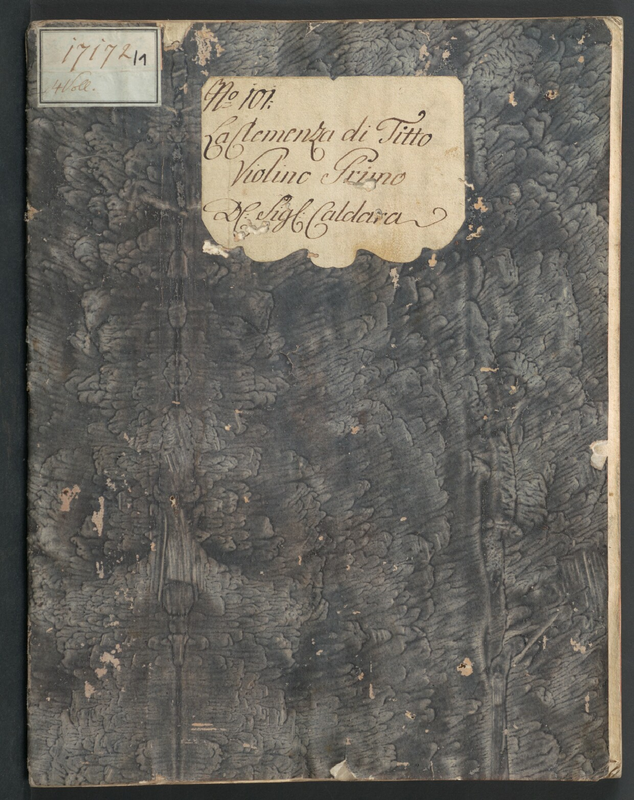 17172/1
4 Voll.
No 101:
La Clemenza di Titto
Violino Primo
Del: Sigl: Caldara